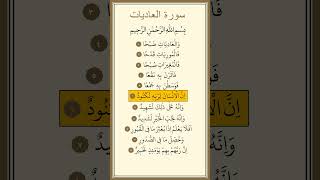 سورة العاديات
بِسْمِ اللَّهِ الرَّحْمَنِ الرَّحِيمِ
وَالْعَادِيَاتِ ضَبْحًا ١
فَالْمُورِيَاتِ قَدْحًا ٢
فَالْمُغِيرَاتِ صُبْحًا ٣
فَأَثَرْنَ بِهِ نَقْعًا ٤
فَوَسَطْنَ بِهِ جَمْعًا ٥
اِنَّ الْاِنْسَانَ لِرَبِّهِ لَكَنُودٌ ٦
وَاِنَّهُ عَلَى ذَلِكَ لَشَهِيدٌ ٧
وَاِنَّهُ لِحُبِّ الْخَيْرِ لَشَدِيدٌ ٨
اَفَلَا يَعْلَمُ اِذَا بُعْثِرَ مَا فِي الْقُبُورِ ٩
وَحُصِّلَ مَا فِي الصُّدُورِ ١٠
اِنَّ رَبَّهُمْ بِهِمْ يَوْمَئِذٍ لَخَبِيرٌ ١١